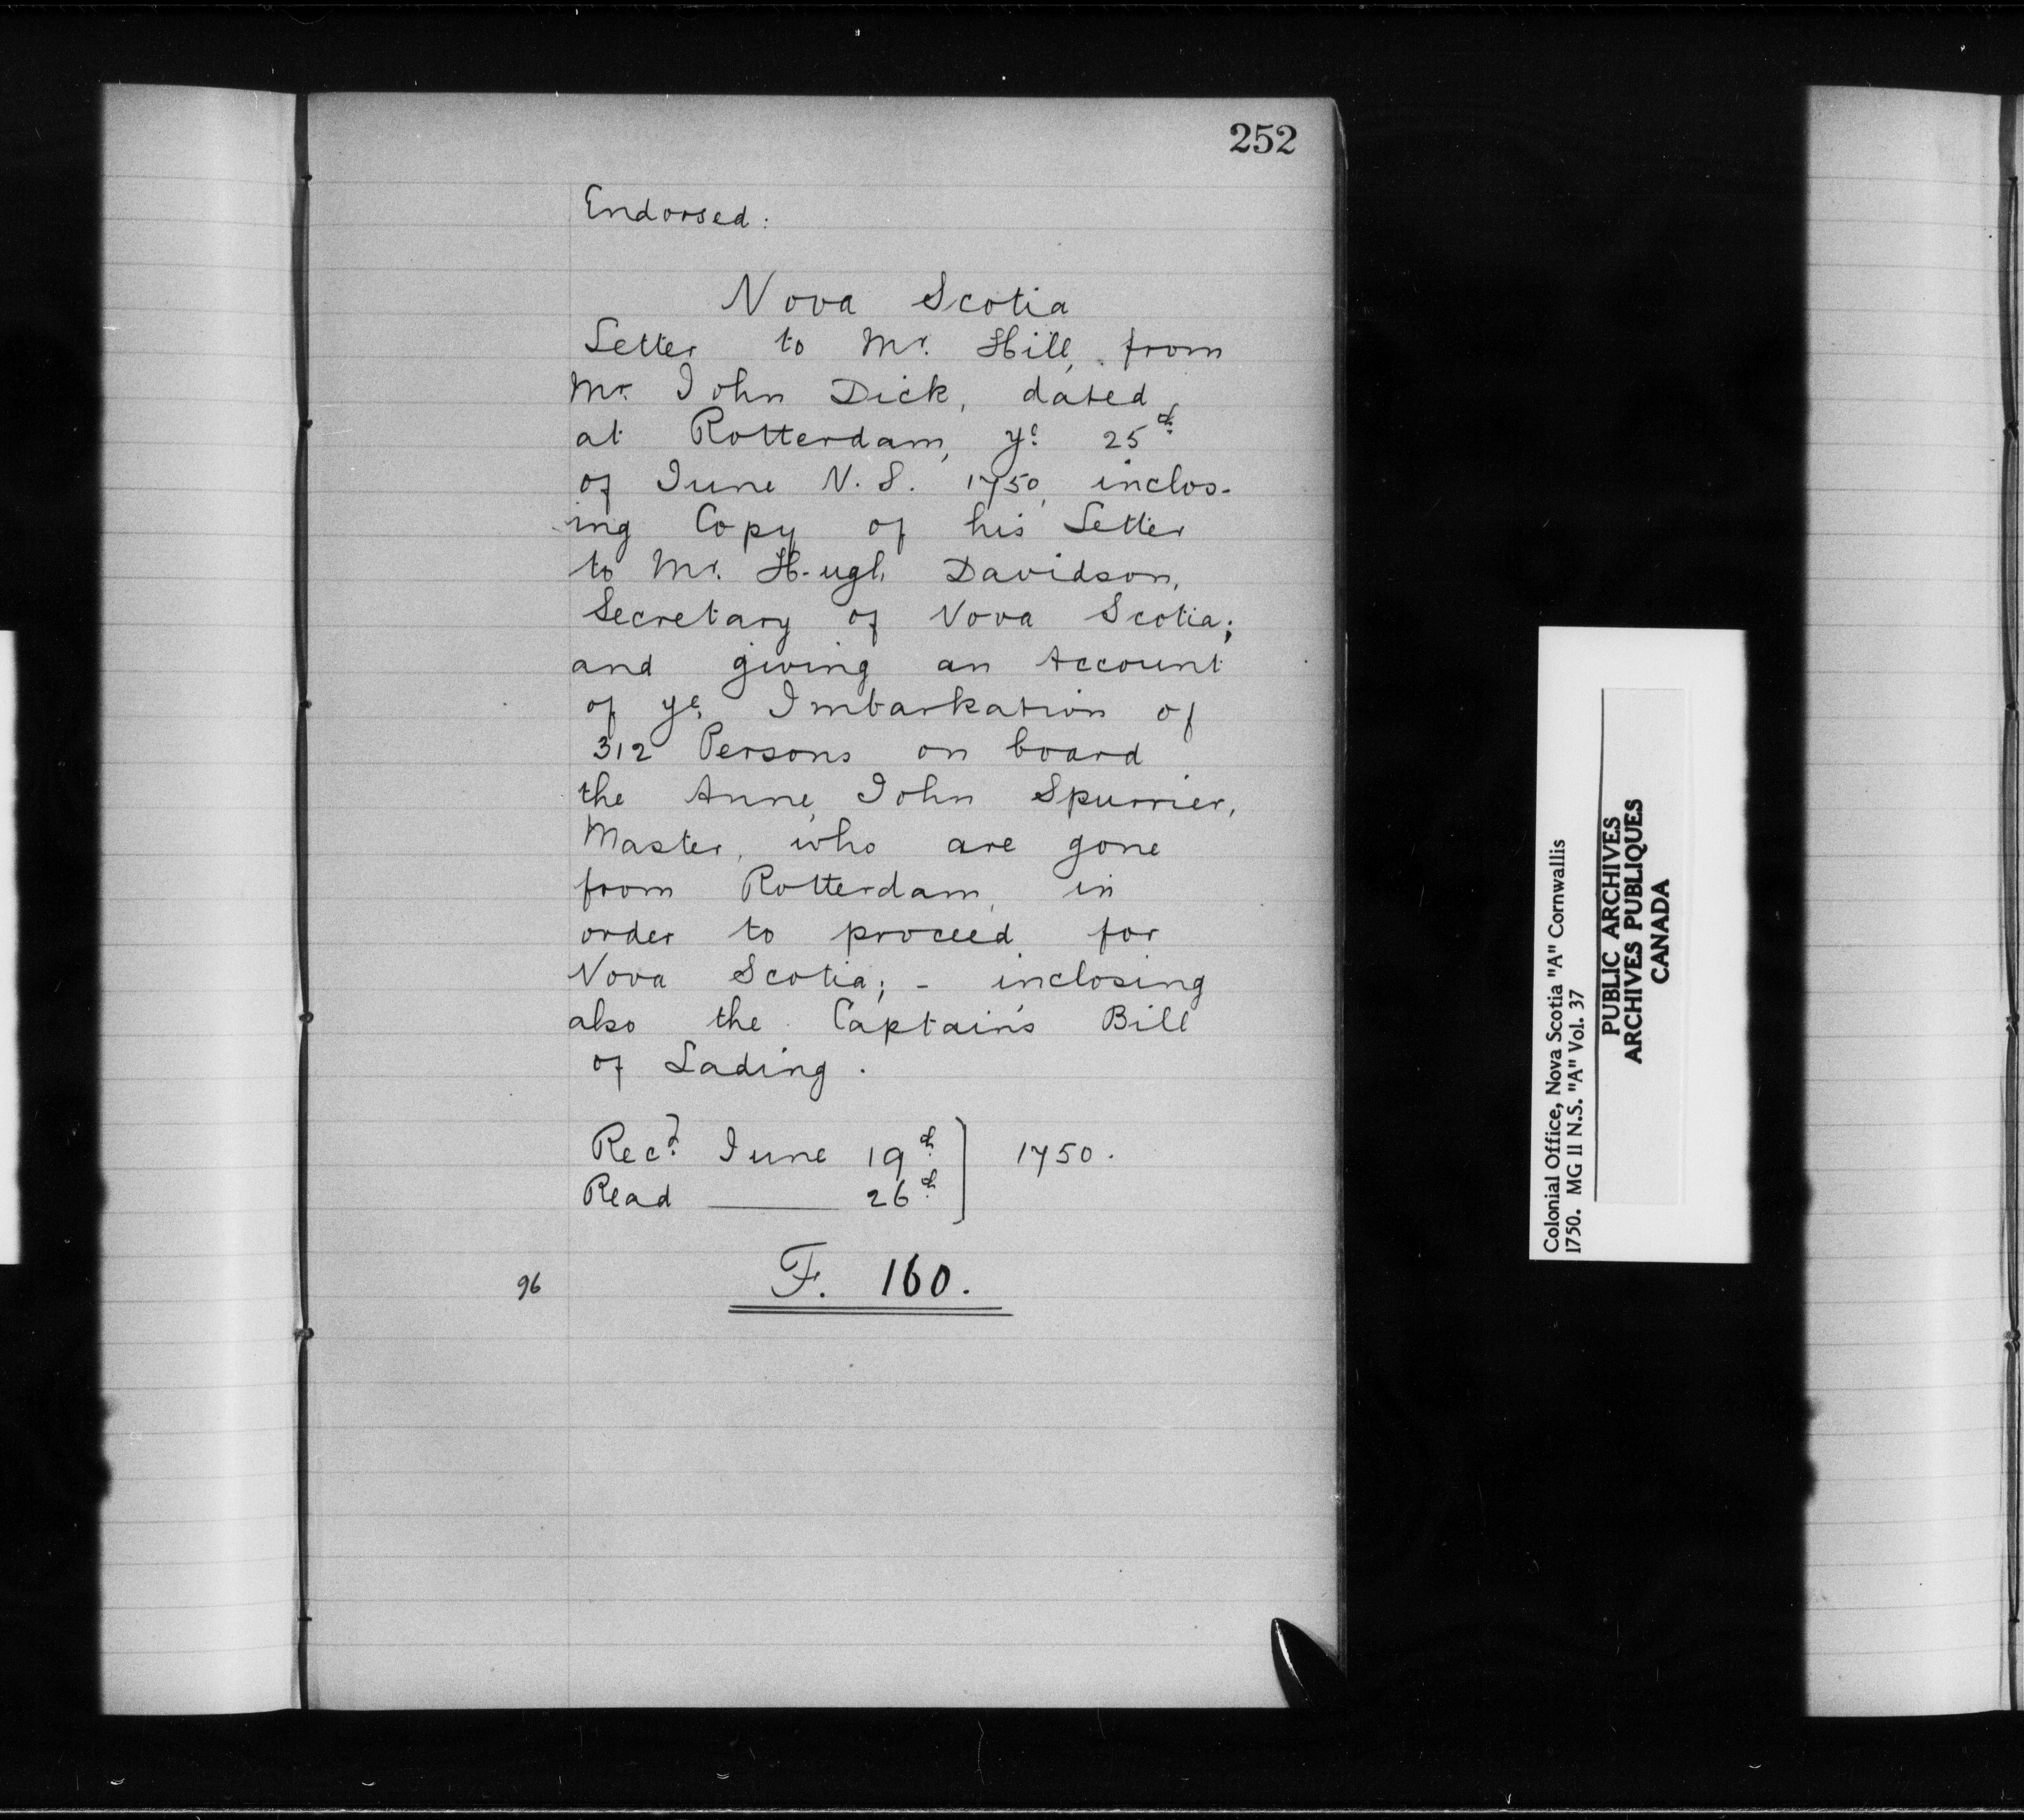 252
Endorsed:
Nova Scotia
Letter to Mr. Hill, from
Mr. John Dick, dated
at Rotterdam, ye 25th
of June N.S. 1750, inclos-
-ing Copy of his Letter
to Mr. Hugh Davidson,
Secretary of Nova Scotia;
and giving an Account
of ye Imbarkation of
312 Persons on board
the Anne, John Spurrier,
Master, who are gone
from Rotterdam, in
order to proceed for
Nova Scotia; - inclosing
also the Captain's Bill
of Lading.
Recd. June 19th } 1750.
Read ——— 26th
96 F. 160.
Colonial Office, Nova Scotia "A" Cornwallis
1750. MG II N.S. "A" Vol. 37
PUBLIC ARCHIVES
ARCHIVES PUBLIQUES
CANADA